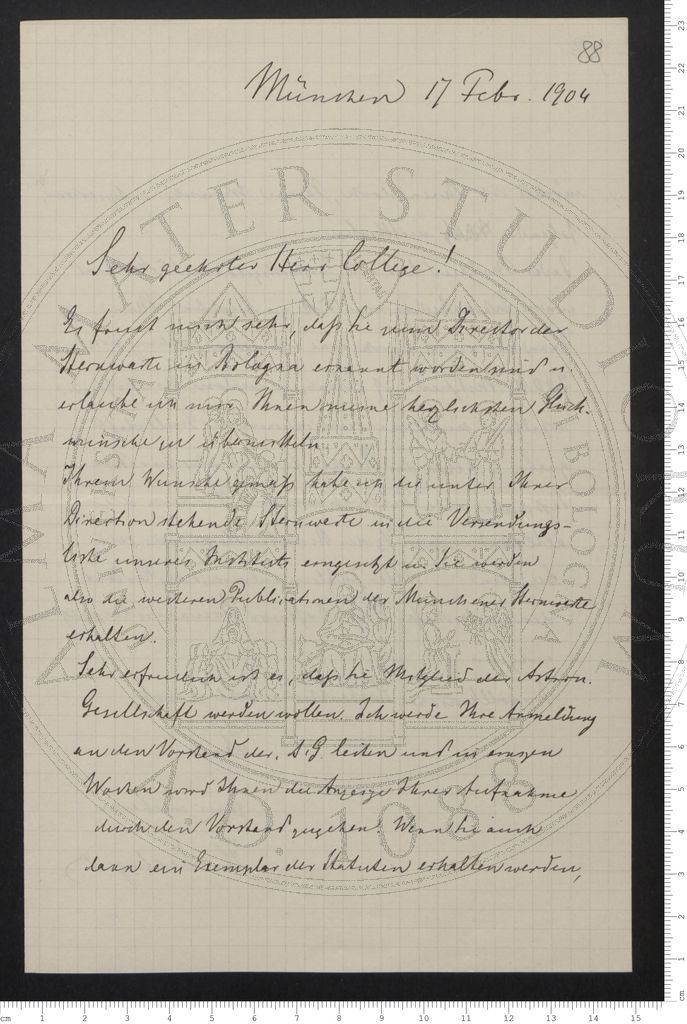 88
München 17 Febr. 1904
Sehr geehrter Herr College!
Es freut mich sehr, daß Sie zum Director der
Sternwarte in Bologna ernannt worden sind u.
erlaube ich mir Ihnen meine herzlichsten Glück-
wünsche zu übermitteln.
Ihrem Wunsche gemäß habe ich die unter Ihrer
Direction stehende Sternwarte in die Versendungs-
liste unseres Instituts eingesetzt u. Sie werden
also die weiteren Publicationen der Münchener Sternwarte
erhalten.
Sehr erfreulich ist es, daß Sie Mitglied der Astron.
Gesellschaft werden wollen. Ich werde Ihre Anmeldung
an den Vorstand der A. G. leiten und in einigen
Wochen wird Ihnen die Anzeige Ihrer Aufnahme
durch den Vorstand zugehen. Wenn Sie auch
dann ein Exemplar der Statuten erhalten werden,
ALMA MATER STUDIORUM
A.D. 1088